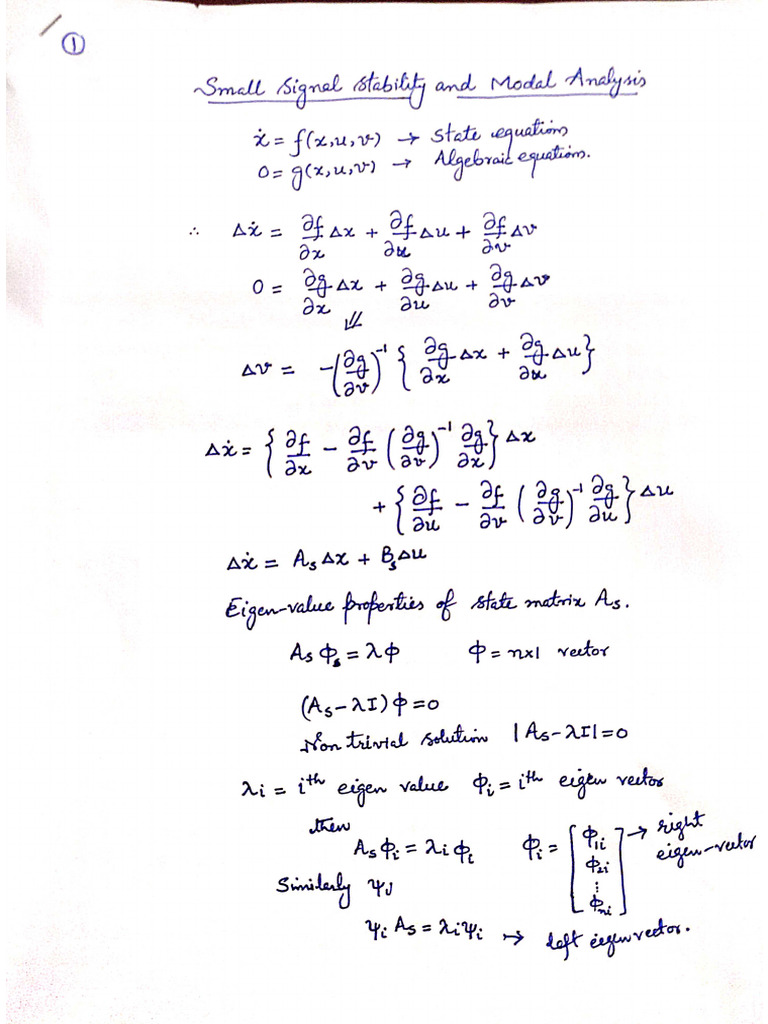 ①
Small Signal Stability and Modal Analysis
ẋ = f(x,u,v) → State equations
0 = g(x,u,v) → Algebraic equations.
∴ Δẋ = ∂f/∂x Δx + ∂f/∂u Δu + ∂f/∂v Δv
0 = ∂g/∂x Δx + ∂g/∂u Δu + ∂g/∂v Δv
⇙
Δv = -(∂g/∂v)⁻¹ { ∂g/∂x Δx + ∂g/∂u Δu }
Δẋ = { ∂f/∂x - ∂f/∂v (∂g/∂v)⁻¹ ∂g/∂x } Δx
+ { ∂f/∂u - ∂f/∂v (∂g/∂v)⁻¹ ∂g/∂u } Δu
Δẋ = AₛΔx + BₛΔu
Eigen-value properties of state matrix Aₛ.
Aₛ ϕₛ = λϕ ϕ = n×1 vector
(Aₛ-λI)ϕ=0
Non trivial solution |Aₛ-λI|=0
λi = iᵗʰ eigen value ϕi = iᵗʰ eigen vector
then
Aₛϕi = λiϕi ϕi = [ϕ1i ϕ2i ⋮ ϕni] → right eigen-vector
Similarly ψJ
ψi Aₛ = λiψi → left eigenvector.